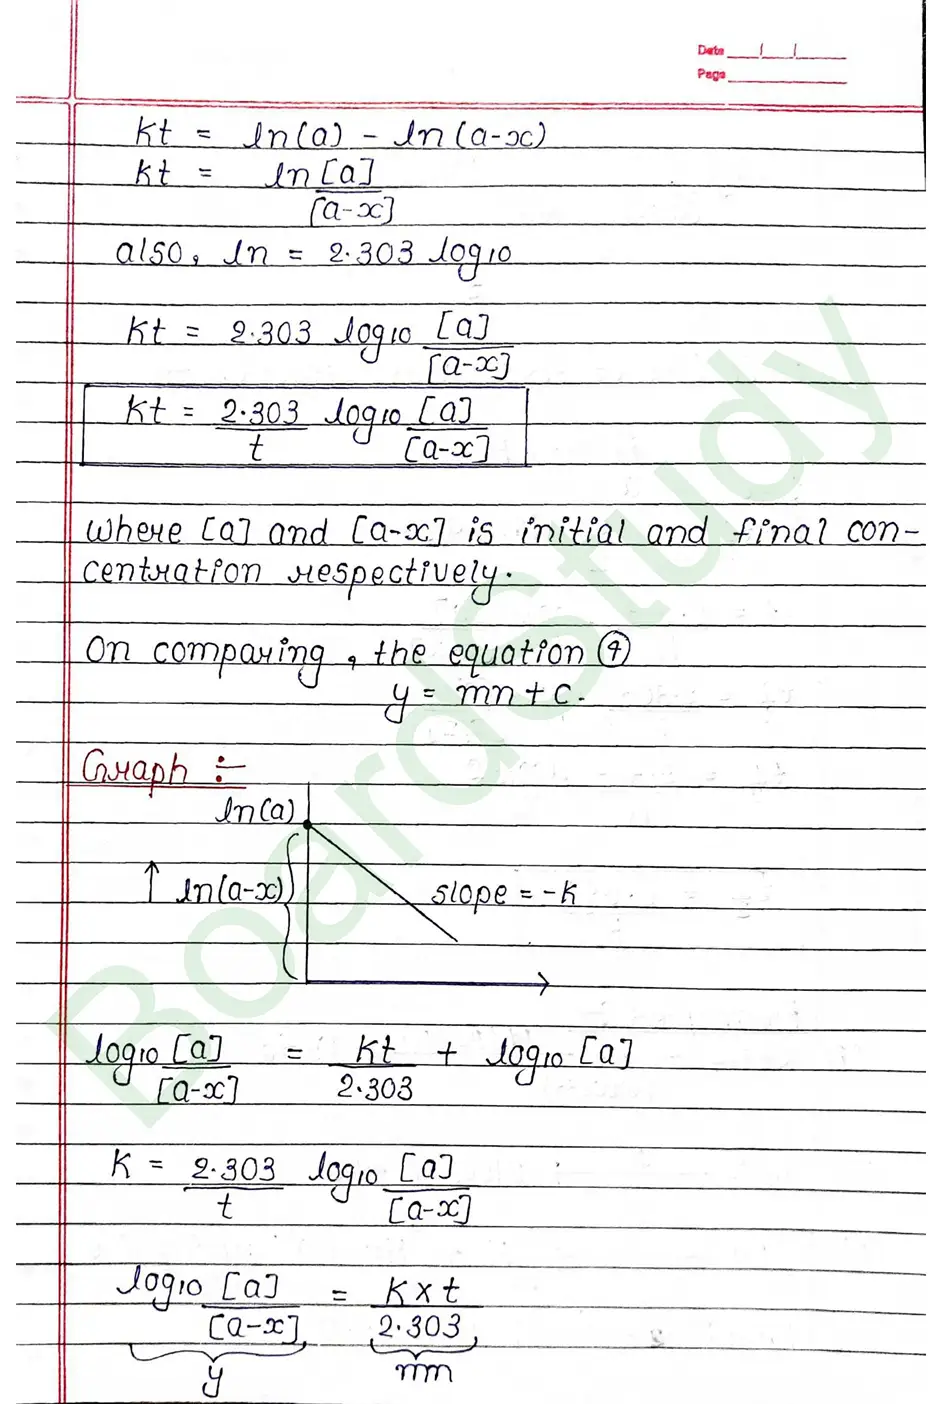 Date __/__/____
Page ________
Kt = ln(a) - ln(a-x)
Kt = ln [a]
[a-x]
also, ln = 2.303 log10
Kt = 2.303 log10 [a]
[a-x]
Kt = 2.303 log10 [a]
t [a-x]
where [a] and [a-x] is initial and final con-
centration respectively.
On comparing, the equation ④
y = mn + c.
Graph :-
ln(a)
↑ ln(a-x) slope = -K
log10 [a] = Kt + log10 [a]
[a-x] 2.303
K = 2.303 log10 [a]
t [a-x]
log10 [a] = K × t
[a-x] 2.303
y mn
BoardStudy